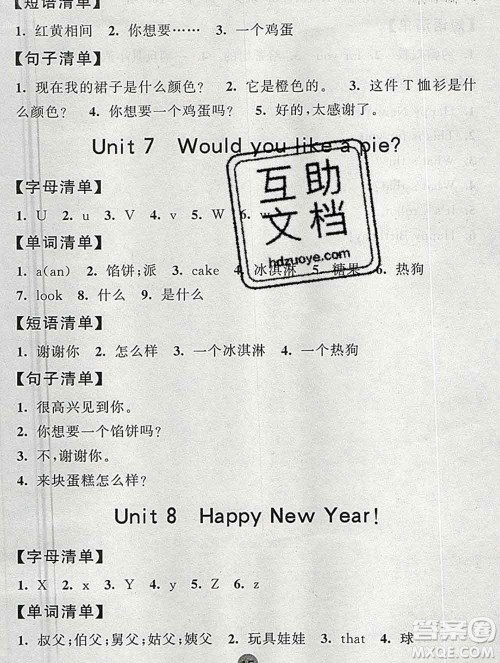 【短语清单】
1. 红黄相间 2. 你想要…… 3. 一个鸡蛋
【句子清单】
1. 现在我的裙子是什么颜色? 2. 它是橙色的。 3. 这件 T 恤衫是什
么颜色? 4. 你想要一个鸡蛋吗? 5. 好的,太感谢了。
Unit 7 Would you like a pie?
【字母清单】
1. U 2. u 3. V 4. v 5. W 6. w
【单词清单】
1. a(an) 2. 馅饼;派 3. cake 4. 冰淇淋 5. 糖果 6. 热狗
7. look 8. 什么 9. 是什么
【短语清单】
1. 谢谢你 2. 怎么样 3. 一个冰淇淋 4. 一个热狗
【句子清单】
1. 很高兴见到你。
2. 你想要一个馅饼吗?
3. 不,谢谢。
4. 来块蛋糕怎么样?
Unit 8 Happy New Year!
【字母清单】
1. X 2. x 3. Y 4. y 5. Z 6. z
【单词清单】
1. 叔父;伯父;舅父;姑父;姨父 2. 玩具娃娃 3. that 4. 球
互助
文档
hdzuoye.com
答案圈
MXQE.COM